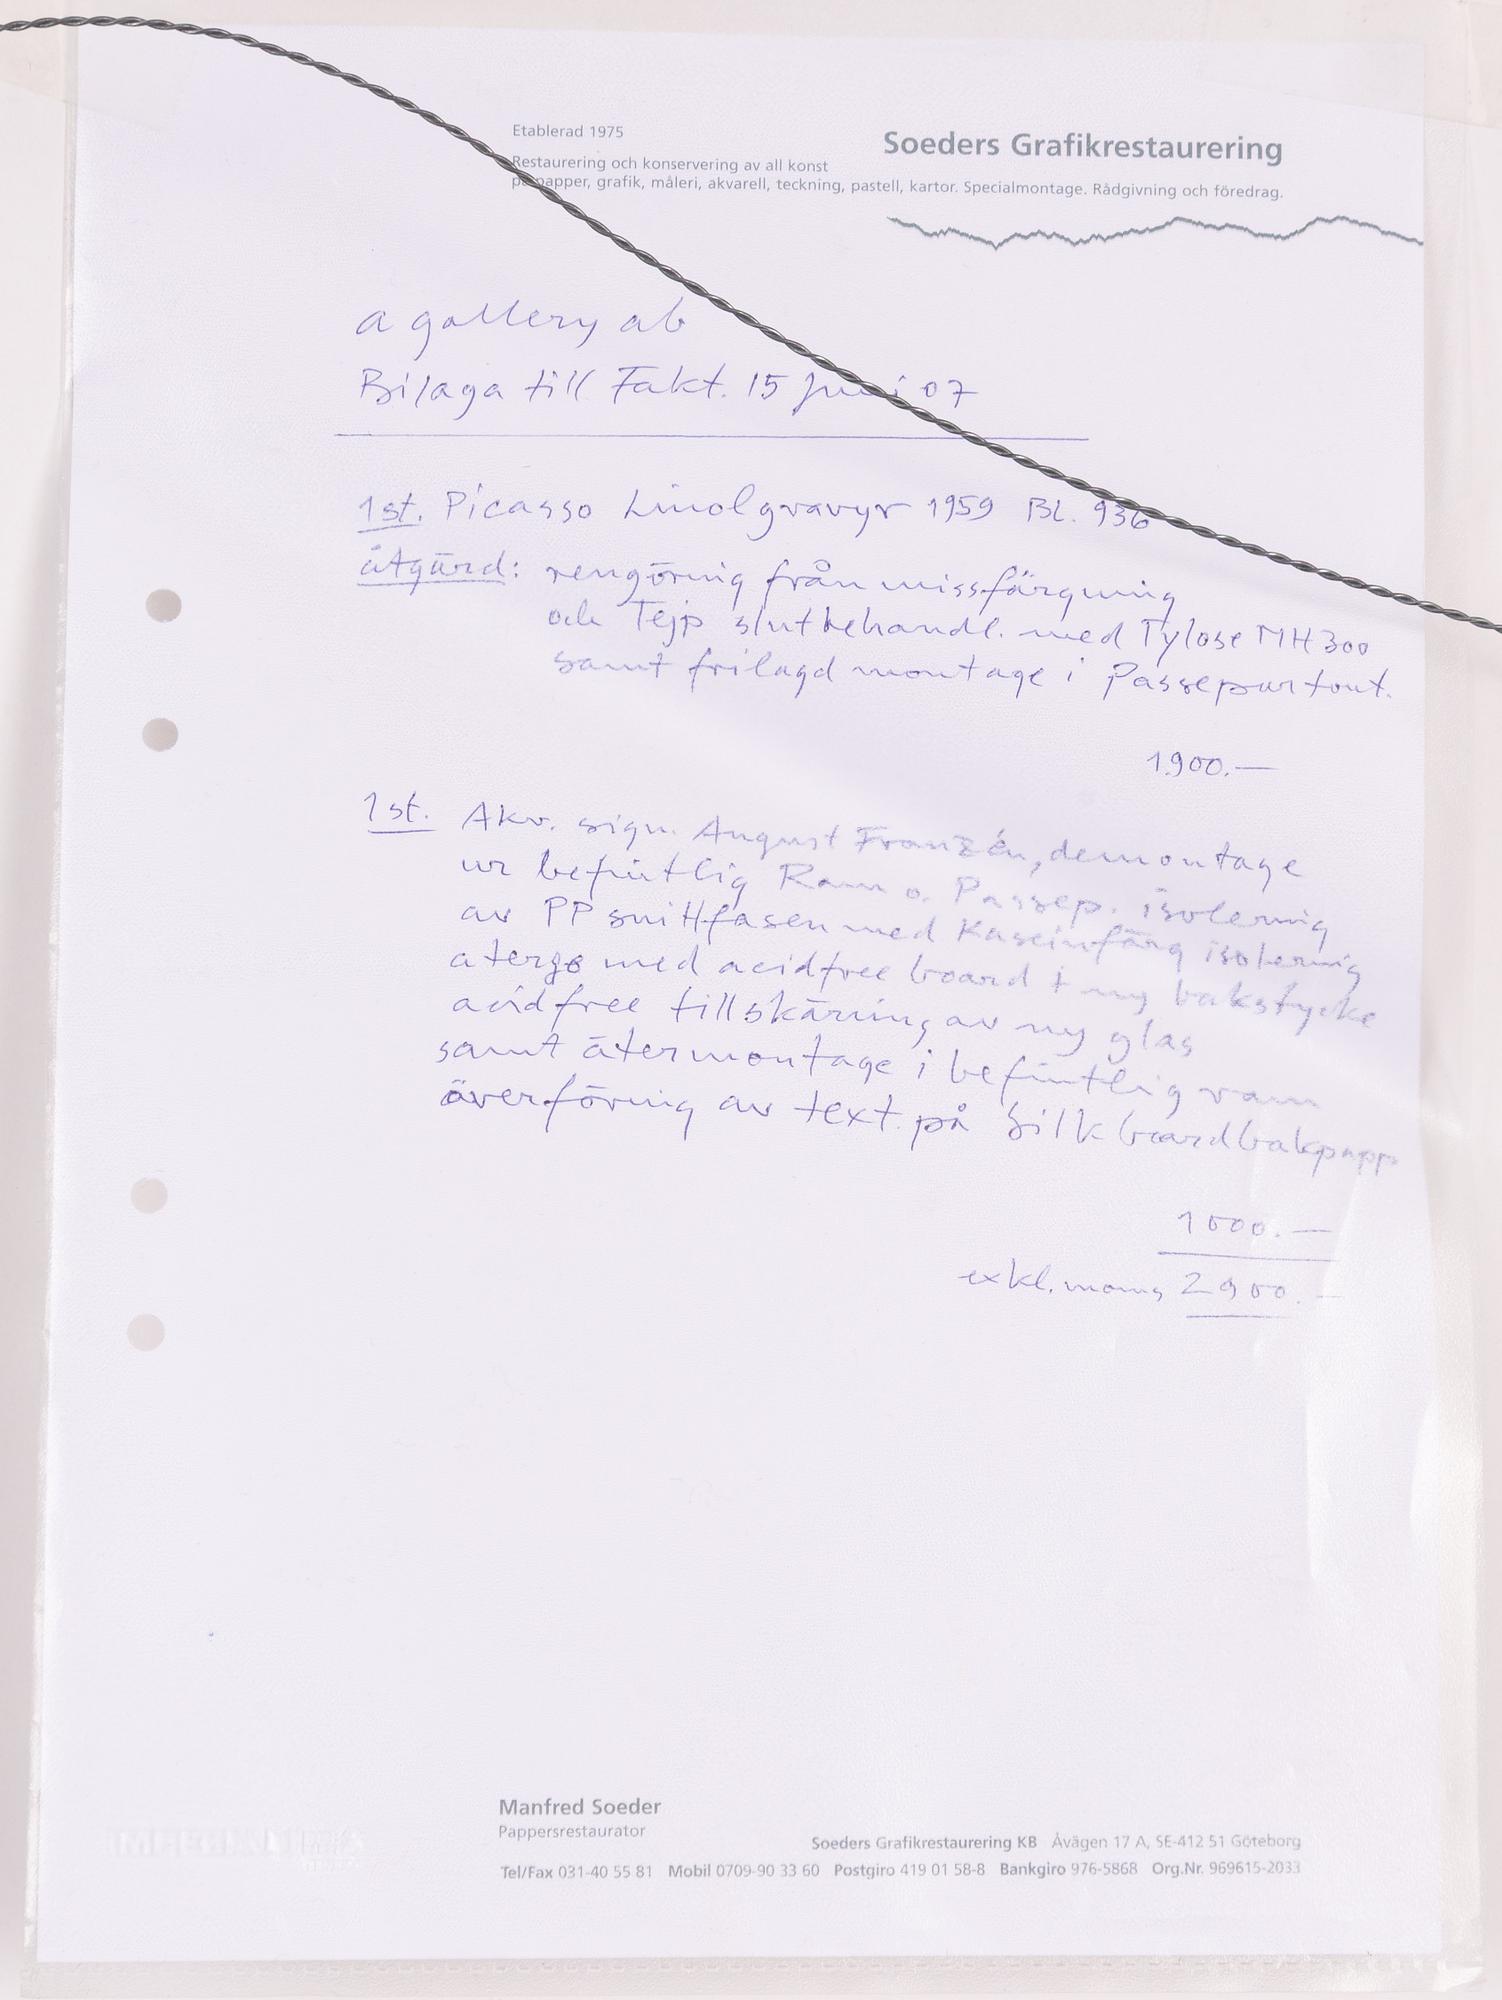 Etablerad 1975
Soeders Grafikrestaurering
Restaurering och konservering av all konst
på papper, grafik, måleri, akvarell, teckning, pastell, kartor. Specialmontage. Rådgivning och föredrag.
a gallery ab
Bilaga till Fakt. 15 Juni 07
1st. Picasso Linolgravyr 1959 BL. 936
åtgärd: rengöring från missfärgning
och Tejp slutbehandl. med Tylose MH300
samt frilagd montage i Passepartout.
1.900.—
1st. Akv. sign. August Franzén, demontage
ur befintlig Ram o. Passep. isolering
av PP snittfasen med Kaseinfärg isolering
atergo med acidfree board + ny bakstycke
acidfree tillskäring av ny glas
samt återmontage i befintlig ram
överföring av text på Silkboardbakpapp
1000.—
exkl. moms 2900.—
Manfred Soeder
Pappersrestaurator
Soeders Grafikrestaurering KB Åvägen 17 A, SE-412 51 Göteborg
Tel/Fax 031-40 55 81 Mobil 0709-90 33 60 Postgiro 419 01 58-8 Bankgiro 976-5868 Org.Nr. 969615-2033